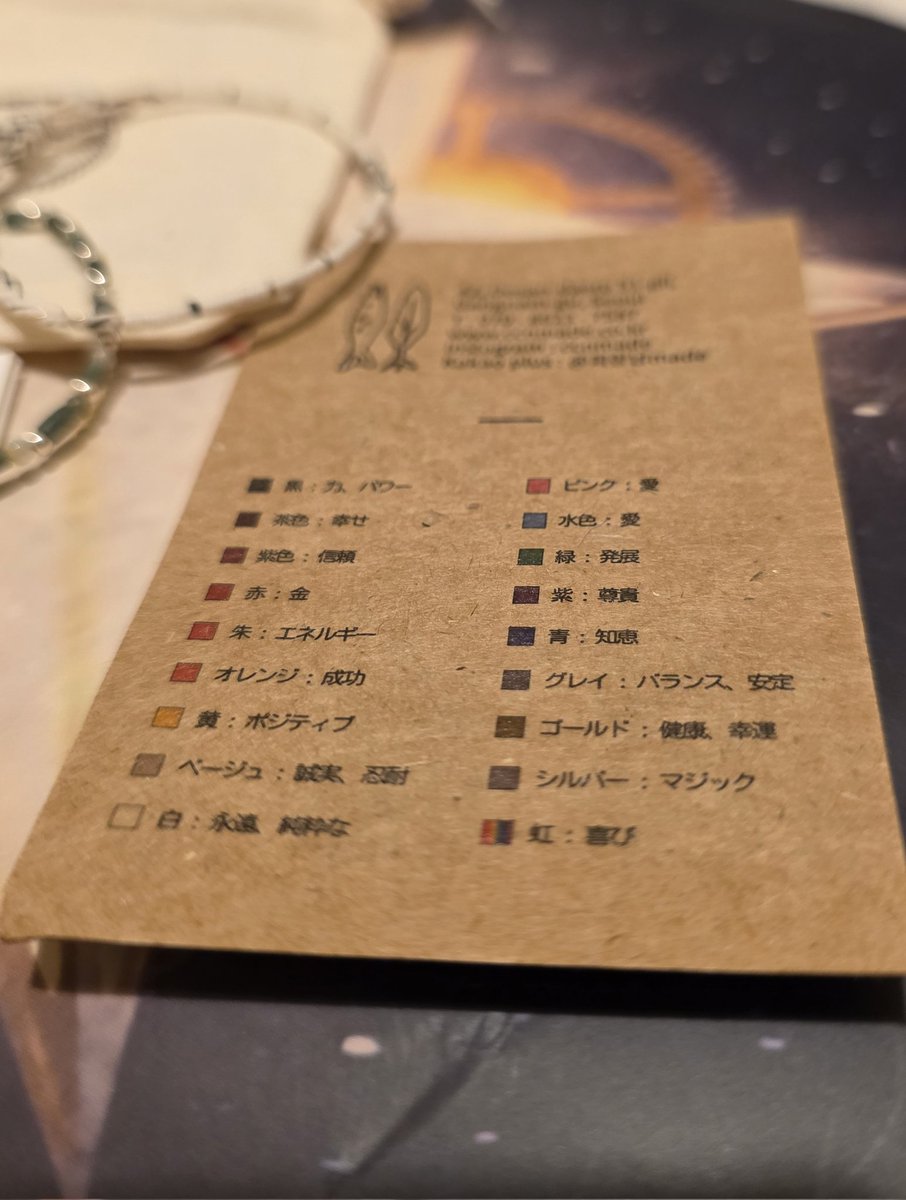 黒 : 力、パワー
茶色 : 幸せ
紫色 : 信頼
赤 : 金
朱 : エネルギー
オレンジ : 成功
黄 : ポジティブ
ベージュ : 誠実、忍耐
白 : 永遠、純粋な
ピンク : 愛
水色 : 愛
緑 : 発展
紫 : 尊貴
青 : 知恵
グレイ : バランス、安定
ゴールド : 健康、幸運
シルバー : マジック
虹 : 喜び